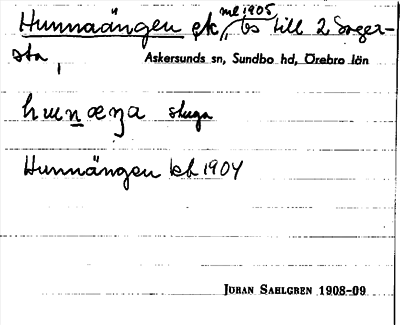 Hunnaängen ek, ml 1905, bs till 2 Soger-
sta,
Askersunds sn, Sundbo hd, Örebro län
hunæŋa stuga
Hunnängen kb 1904
JOHAN SAHLGREN 1908-09